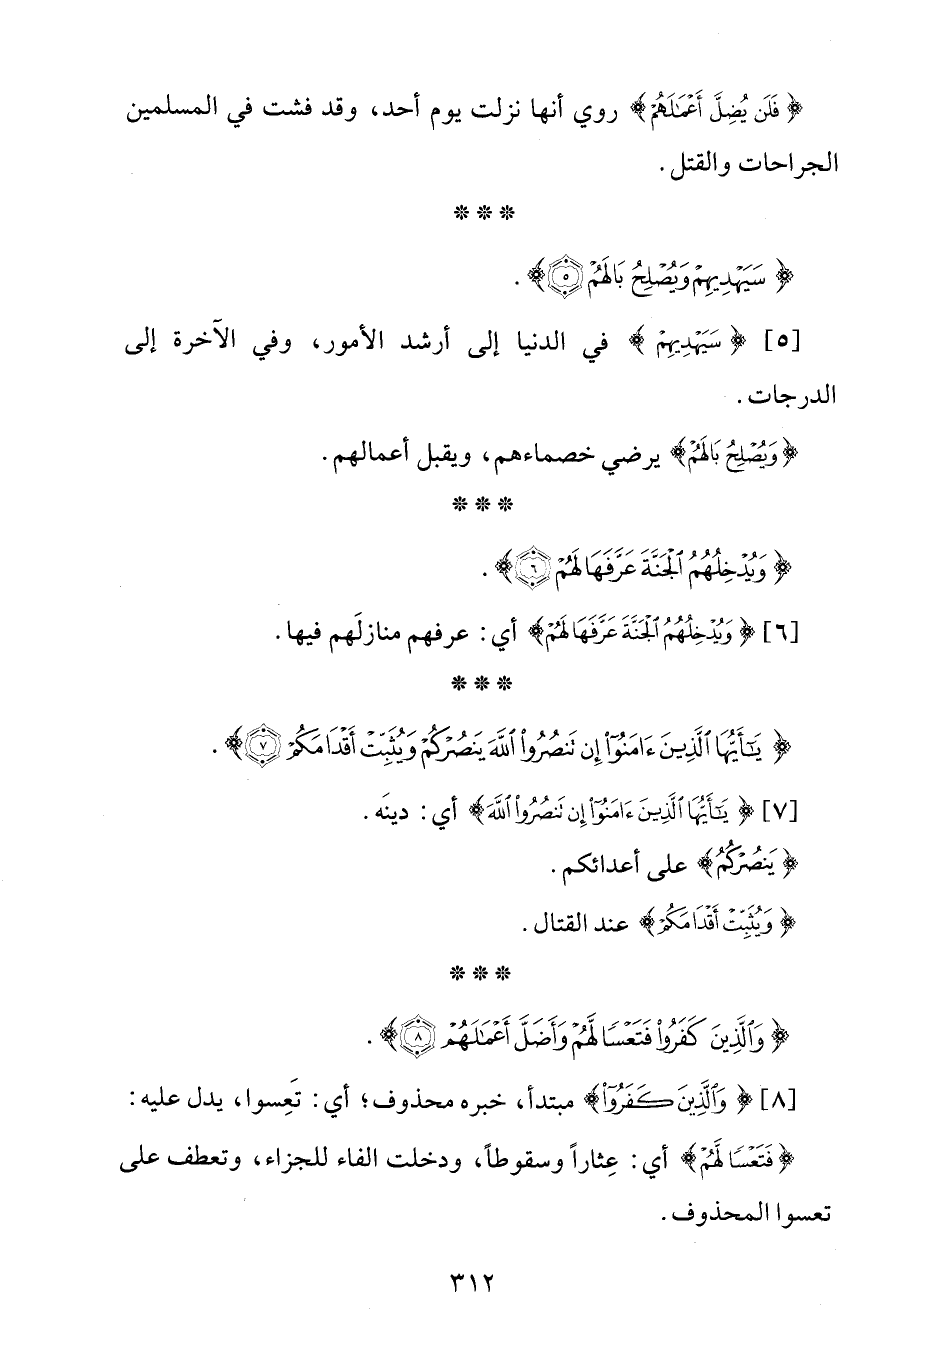 ﴿ فَلَن يُضِلَّ أَعْمَٰلَهُمْ ﴾ روي أنها نزلت يوم أحد، وقد فشت في المسلمين
الجراحات والقتل.
* * *
﴿ سَيَهْدِيهِمْ وَيُصْلِحُ بَالَهُمْ ٥ ﴾.
[٥] ﴿ سَيَهْدِيهِمْ ﴾ في الدنيا إلى أرشد الأمور، وفي الآخرة إلى
الدرجات.
﴿ وَيُصْلِحُ بَالَهُمْ ﴾ يرضي خصماءهم، ويقبل أعمالهم.
* * *
﴿ وَيُدْخِلُهُمُ ٱلْجَنَّةَ عَرَّفَهَا لَهُمْ ٦ ﴾.
[٦] ﴿ وَيُدْخِلُهُمُ ٱلْجَنَّةَ عَرَّفَهَا لَهُمْ ﴾ أي: عرفهم منازلَهم فيها.
* * *
﴿ يَٰٓأَيُّهَا ٱلَّذِينَ ءَامَنُوٓا۟ إِن تَنصُرُوا۟ ٱللَّهَ يَنصُرْكُمْ وَيُثَبِّتْ أَقْدَامَكُمْ ٧ ﴾.
[٧] ﴿ يَٰٓأَيُّهَا ٱلَّذِينَ ءَامَنُوٓا۟ إِن تَنصُرُوا۟ ٱللَّهَ ﴾ أي: دينَه.
﴿ يَنصُرْكُمْ ﴾ على أعدائكم.
﴿ وَيُثَبِّتْ أَقْدَامَكُمْ ﴾ عند القتال.
* * *
﴿ وَٱلَّذِينَ كَفَرُوا۟ فَتَعْسًا لَّهُمْ وَأَضَلَّ أَعْمَٰلَهُمْ ٨ ﴾.
[٨] ﴿ وَٱلَّذِينَ كَفَرُوٓا۟ ﴾ مبتدأ، خبره محذوف؛ أي: تَعِسوا، يدل عليه:
﴿ فَتَعْسًا لَّهُمْ ﴾ أي: عِثاراً وسقوطاً، ودخلت الفاء للجزاء، وتعطف على
تعسوا المحذوف.
٣١٢